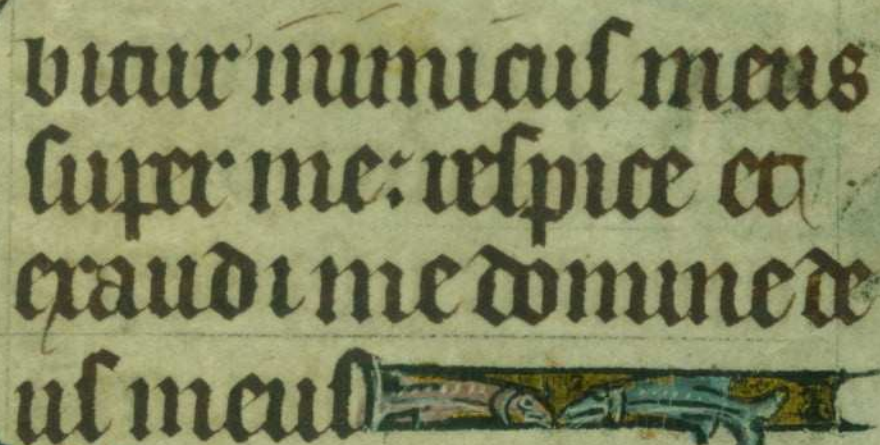 bitur inimicus meus
super me: respice et
exaudi me domine de
us meus